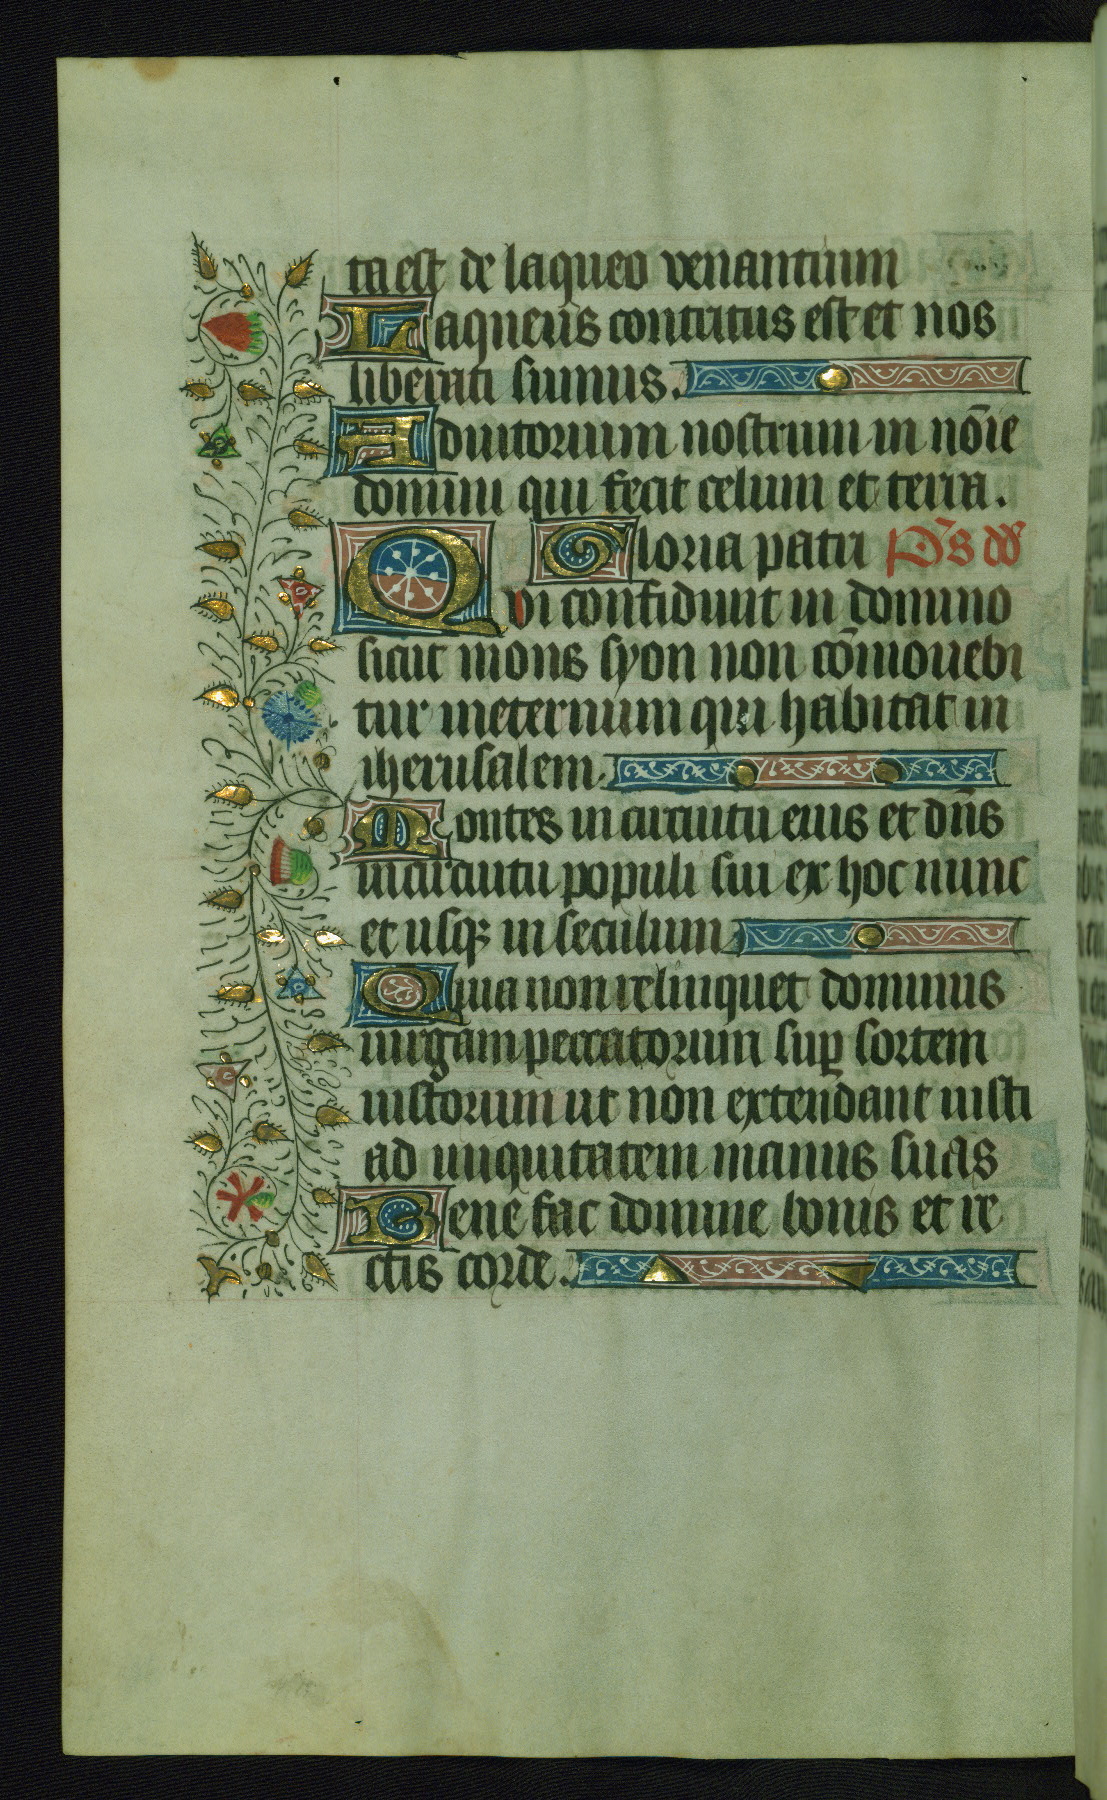 ta est de laqueo venantium
Laqueus contritus est et nos
liberati sumus.
Adiutorium nostrum in nōie
domini qui fecit celum et terra.
Gloria patri P̄s dd̄
Qui confidunt in domino
sicut mons syon non cōmouebi
tur in eternum qui habitat in
iherusalem.
Montes in circuitu eius et dn̄s
in circuitu populi sui ex hoc nunc
et usqꝫ in seculum
Quia non relinquet dominus
uirgam peccatorum suꝑ sortem
iustorum ut non extendant iusti
ad iniquitatem manus suas
Bene fac domine bonis et re
ctis corde.